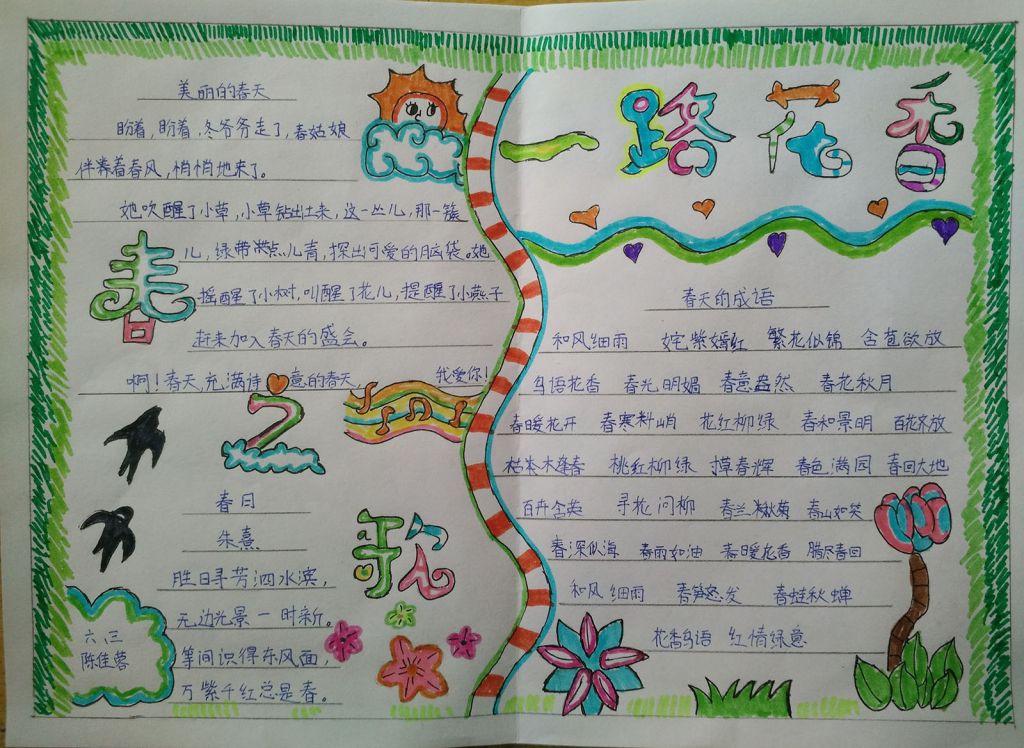 美丽的春天
盼着,盼着,冬爷爷走了,春姑娘
伴着春风,悄悄地来了。
她吹醒了小草,小草钻出土来,这一丛儿,那一簇
儿,绿带点儿青,探出可爱的脑袋。她
摇醒了小树,叫醒了花儿,提醒了小燕子
赶来加入春天的盛会。
啊!春天,充满诗意的春天, 我爱你!
春
之
歌
春日
朱熹
胜日寻芳泗水滨,
无边光景一时新。
等闲识得东风面,
万紫千红总是春。
六.三
陈佳蓉
一路花香
春天的成语
和风细雨 姹紫嫣红 繁花似锦 含苞欲放
鸟语花香 春光明媚 春意盎然 春花秋月
春暖花开 春寒料峭 花红柳绿 春和景明 百花齐放
枯木逢春 桃红柳绿 寸草春晖 春色满园 春回大地
百卉含英 寻花问柳 春兰秋菊 春山如笑
春深似海 春雨如油 春暖花香 腊尽春回
和风细雨 春笋怒发 春蛙秋蝉
花香鸟语 红情绿意